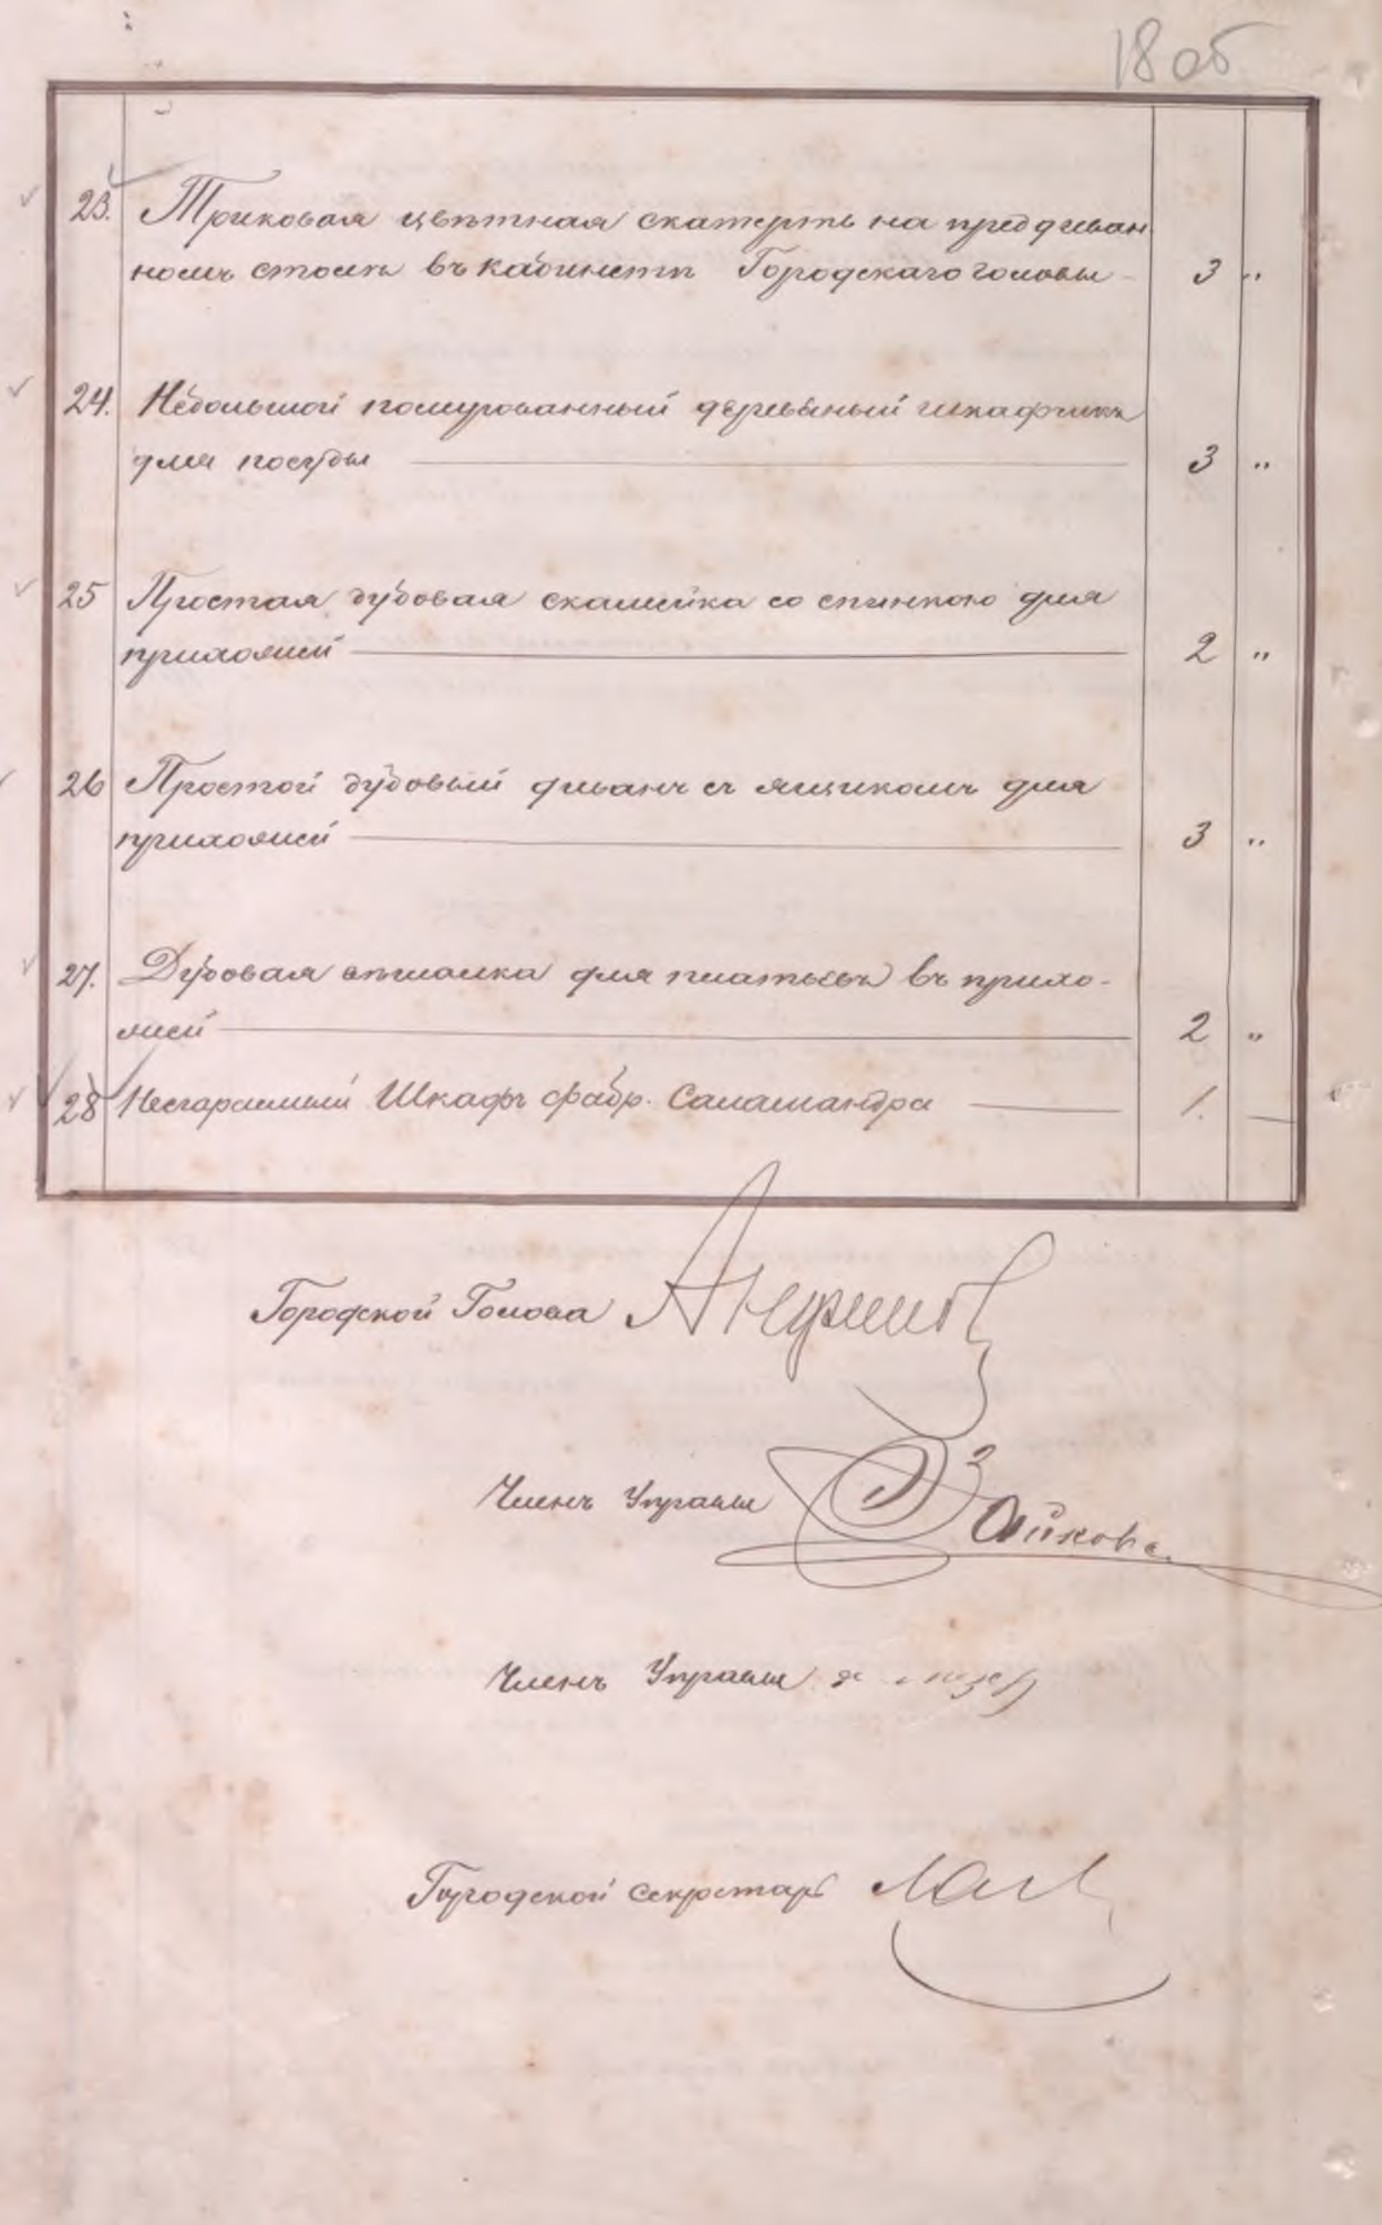 18 об
23. Триковая цвѣтная скатерть на преддиван
номъ столѣ въ кабинетѣ Городскаго головы 3 "
24. Небольшой полированный деревяный шкафчикъ
для посуды 3 "
25 Простая дубовая скамейка со спинкою для
прихожей 2 "
26 Простой дубовый диванъ съ ящикомъ для
прихожей 3 "
27. Дубовая вѣшалка для платьевъ въ прихо-
жей 2 "
28 Несгораемый Шкафъ фабр. Саламандра 1.
Городской Голова
Членъ Управы
Членъ Управы
Городской Секретарь